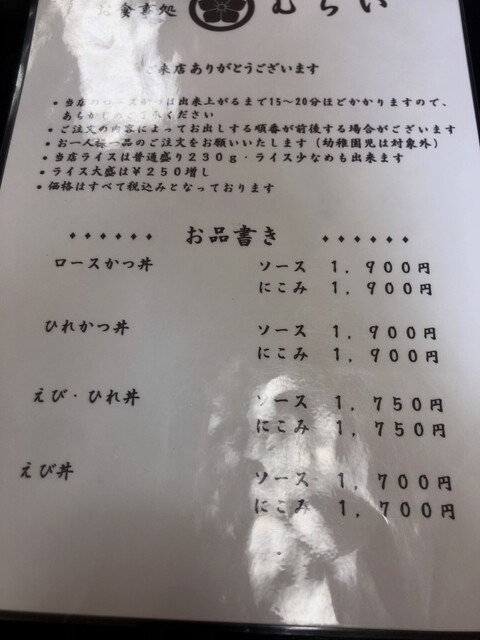 お食事処 むらい
ご来店ありがとうございます
• 当店のロースかつは出来上がるまで15～20分ほどかかりますので、
あらかじめご了承ください
• ご注文の内容によってお出しする順番が前後する場合がございます
• お一人様一品のご注文をお願いいたします（幼稚園児は対象外）
• 当店ライスは普通盛り２３０ｇ・ライス少なめも出来ます
• ライス大盛は￥２５０増し
• 価格はすべて税込みとなっております
お品書き
ロースかつ丼 ソース １，９００円
にこみ １，９００円
ひれかつ丼 ソース １，９００円
にこみ １，９００円
えび・ひれ丼 ソース １，７５０円
にこみ １，７５０円
えび丼 ソース １，７００円
にこみ １，７００円